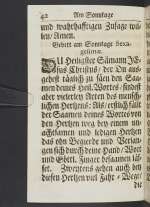 42 Am Sonntage
und wahrhafftigen Zusage wil-
len/ Amen.
Gebett am Sonntage Sexa-
gesimæ.
DU Heiligster Säemann JE-
sus Christus/ der Du aus-
gehest täglich zu säen den Saa-
men deines Heil. Wortes/ findest
aber vielerley Arten des mensch-
lichen Hertzens: Als/ erstlich fällt
der Saamen deines Wortes von
den Hertzen weg bey einem un-
achtsamen und ledigen Hertzen
das ohn Begierde und Verlan-
gen sich durch deine Hand/ Wort
und Göttl. Finger besaamen läs-
set. Zweytens gehen auch bey
diesen Hertzen viel Fahr-
die